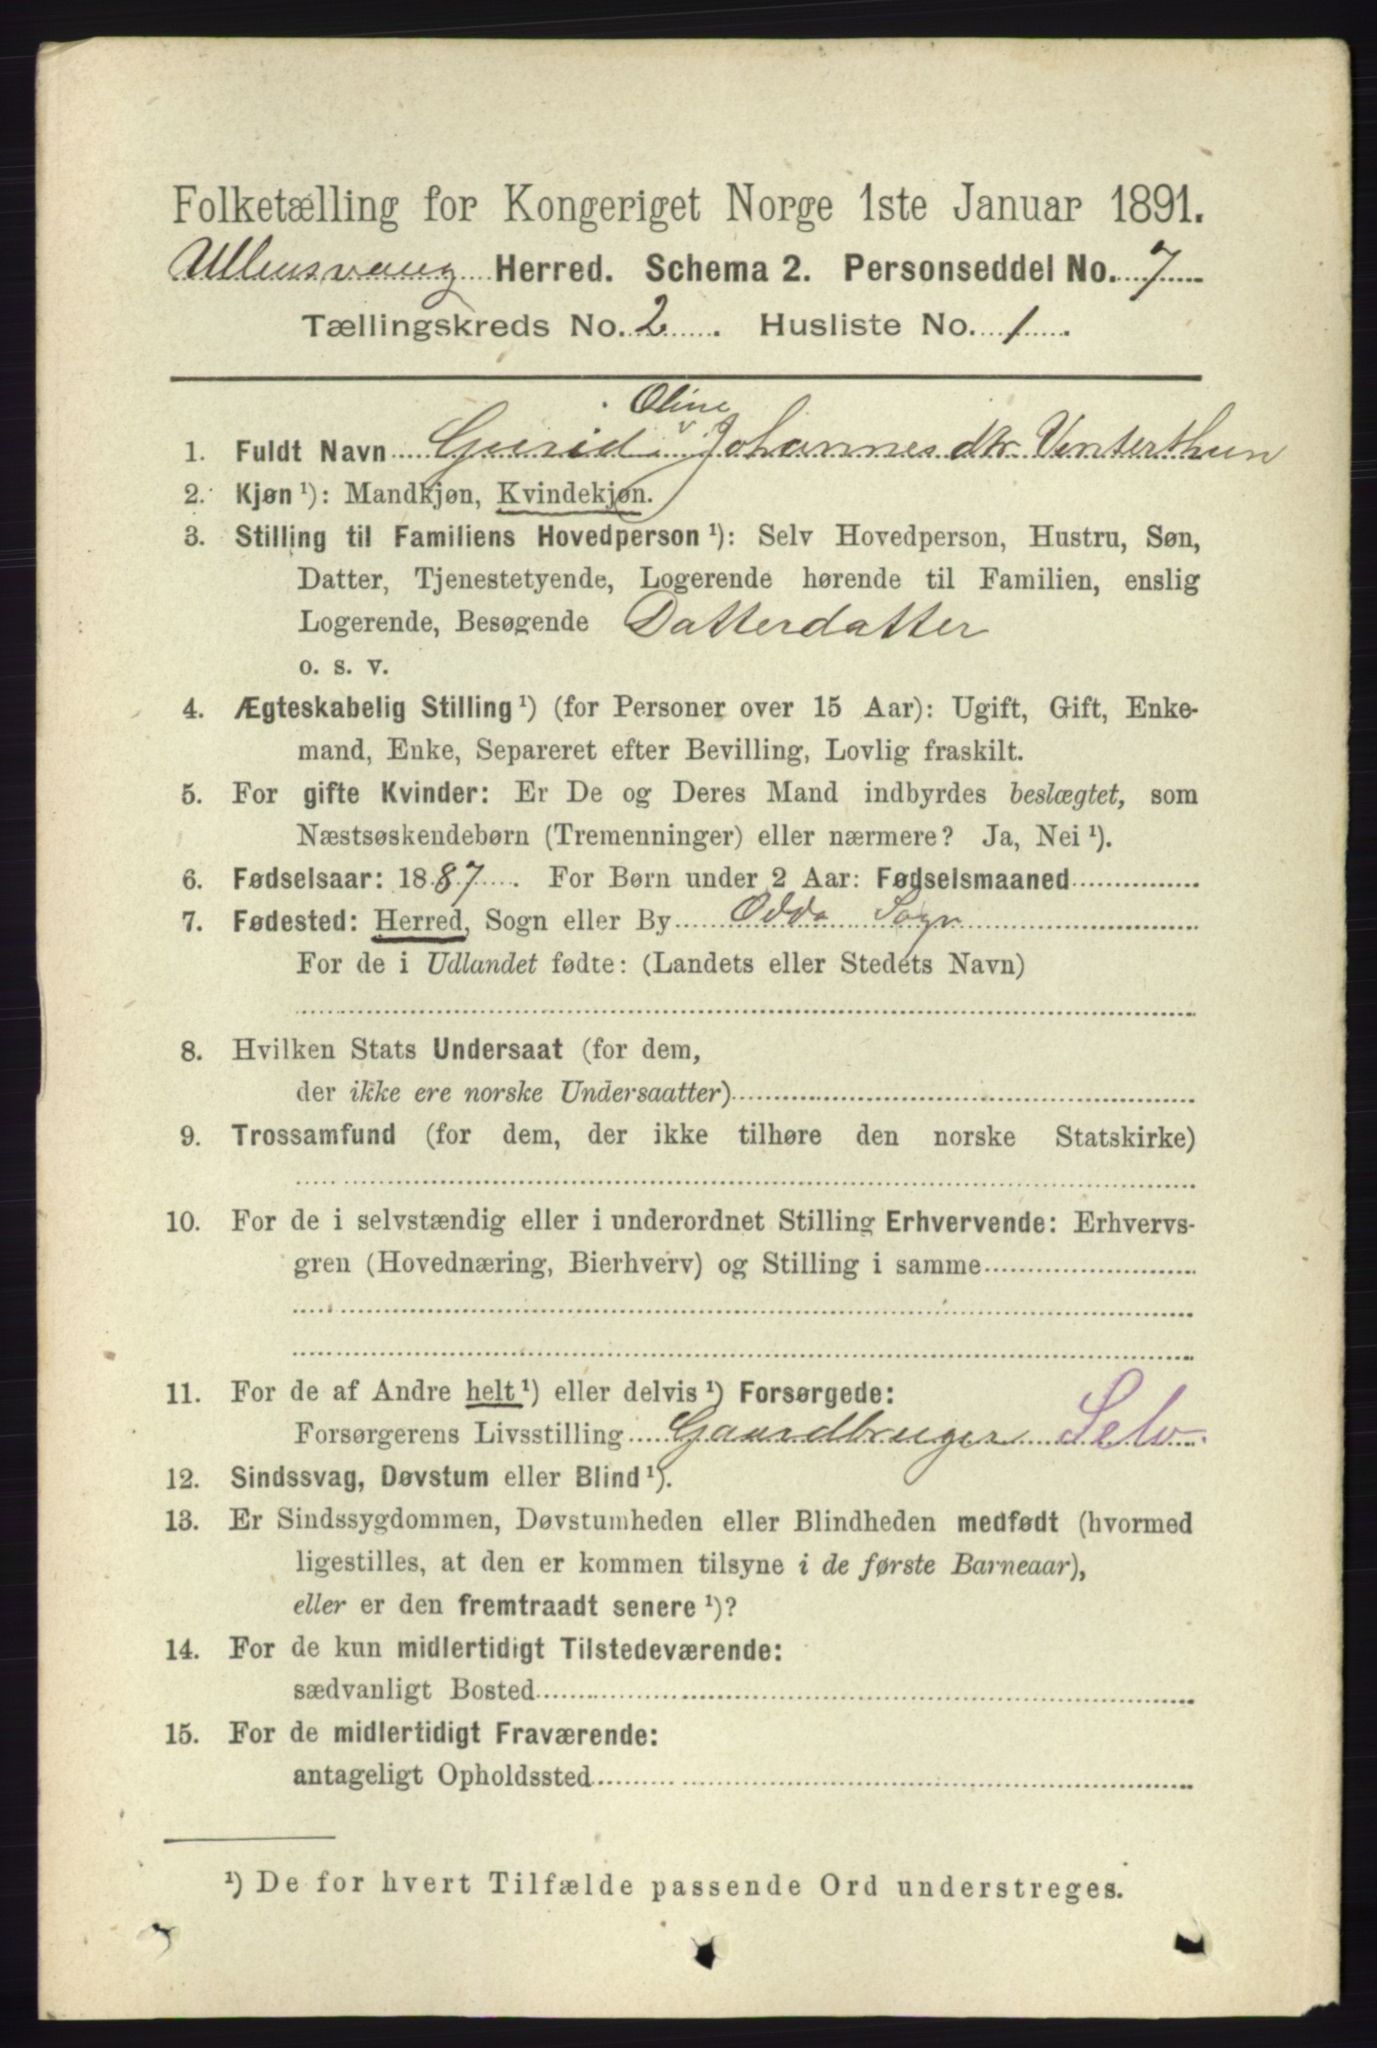 Folketælling for Kongeriget Norge 1ste Januar 1891.
Ullensvang Herred. Schema 2. Personseddel No. 7
Tællingskreds No. 2 . Husliste No. 1 .
Oline
1. Fuldt Navn Gurid v Johannesdtr. Vinterthun
2. Kjøn ¹): Mandkjøn, Kvindekjøn.
3. Stilling til Familiens Hovedperson ¹): Selv Hovedperson, Hustru, Søn,
Datter, Tjenestetyende, Logerende hørende til Familien, enslig
Logerende, Besøgende Datterdatter
o. s. v.
4. Ægteskabelig Stilling ¹) (for Personer over 15 Aar): Ugift, Gift, Enke-
mand, Enke, Separeret efter Bevilling, Lovlig fraskilt.
5. For gifte Kvinder: Er De og Deres Mand indbyrdes beslægtet, som
Næstsøskendebørn (Tremenninger) eller nærmere? Ja, Nei ¹).
6. Fødselsaar: 1887 . For Børn under 2 Aar: Fødselsmaaned
7. Fødested: Herred, Sogn eller By Odda Sogn
For de i Udlandet fødte: (Landets eller Stedets Navn)
8. Hvilken Stats Undersaat (for dem,
der ikke ere norske Undersaatter)
9. Trossamfund (for dem, der ikke tilhøre den norske Statskirke)
10. For de i selvstændig eller i underordnet Stilling Erhvervende: Erhvervs-
gren (Hovednæring, Bierhverv) og Stilling i samme
11. For de af Andre helt ¹) eller delvis ¹) Forsørgede:
Forsørgerens Livsstilling Gaardbruger Selv.
12. Sindssvag, Døvstum eller Blind ¹).
13. Er Sindssygdommen, Døvstumheden eller Blindheden medfødt (hvormed
ligestilles, at den er kommen tilsyne i de første Barneaar),
eller er den fremtraadt senere ¹)?
14. For de kun midlertidigt Tilstedeværende:
sædvanligt Bosted
15. For de midlertidigt Fraværende:
antageligt Opholdssted
¹) De for hvert Tilfælde passende Ord understreges.